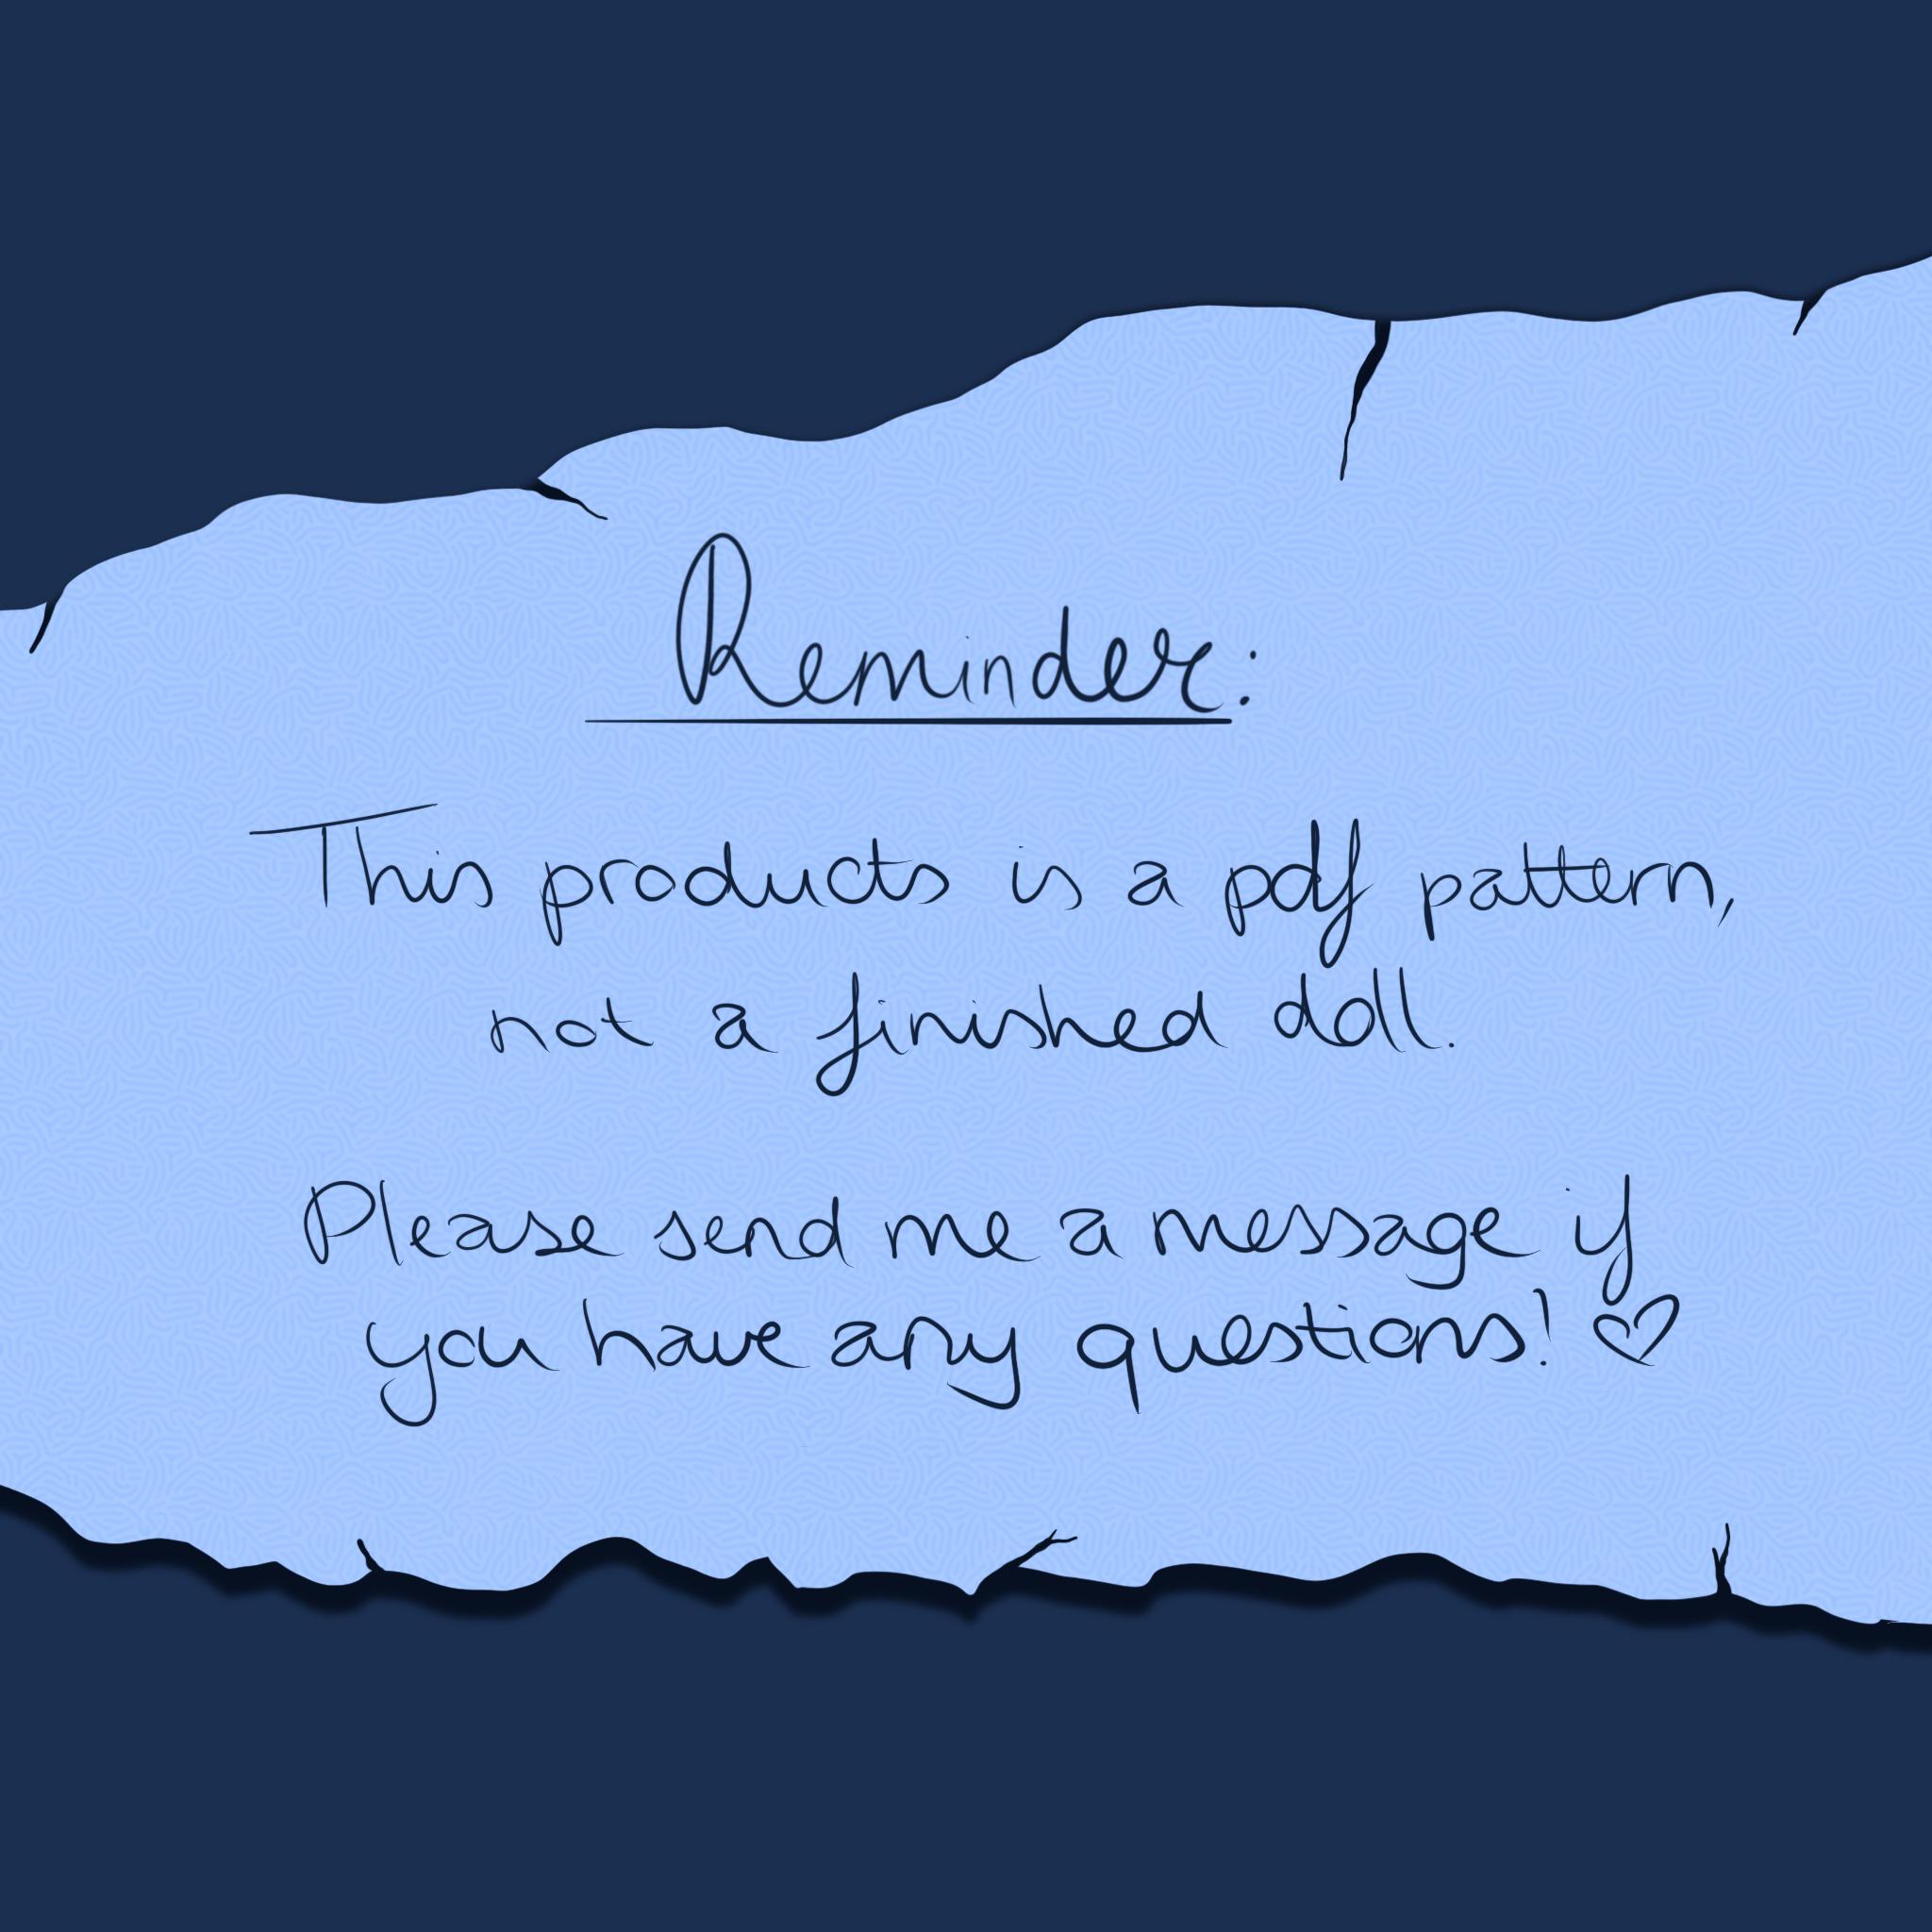 Reminder:
This products is a pdf pattern,
not a finished doll.
Please send me a message if
you have any questions! ♡